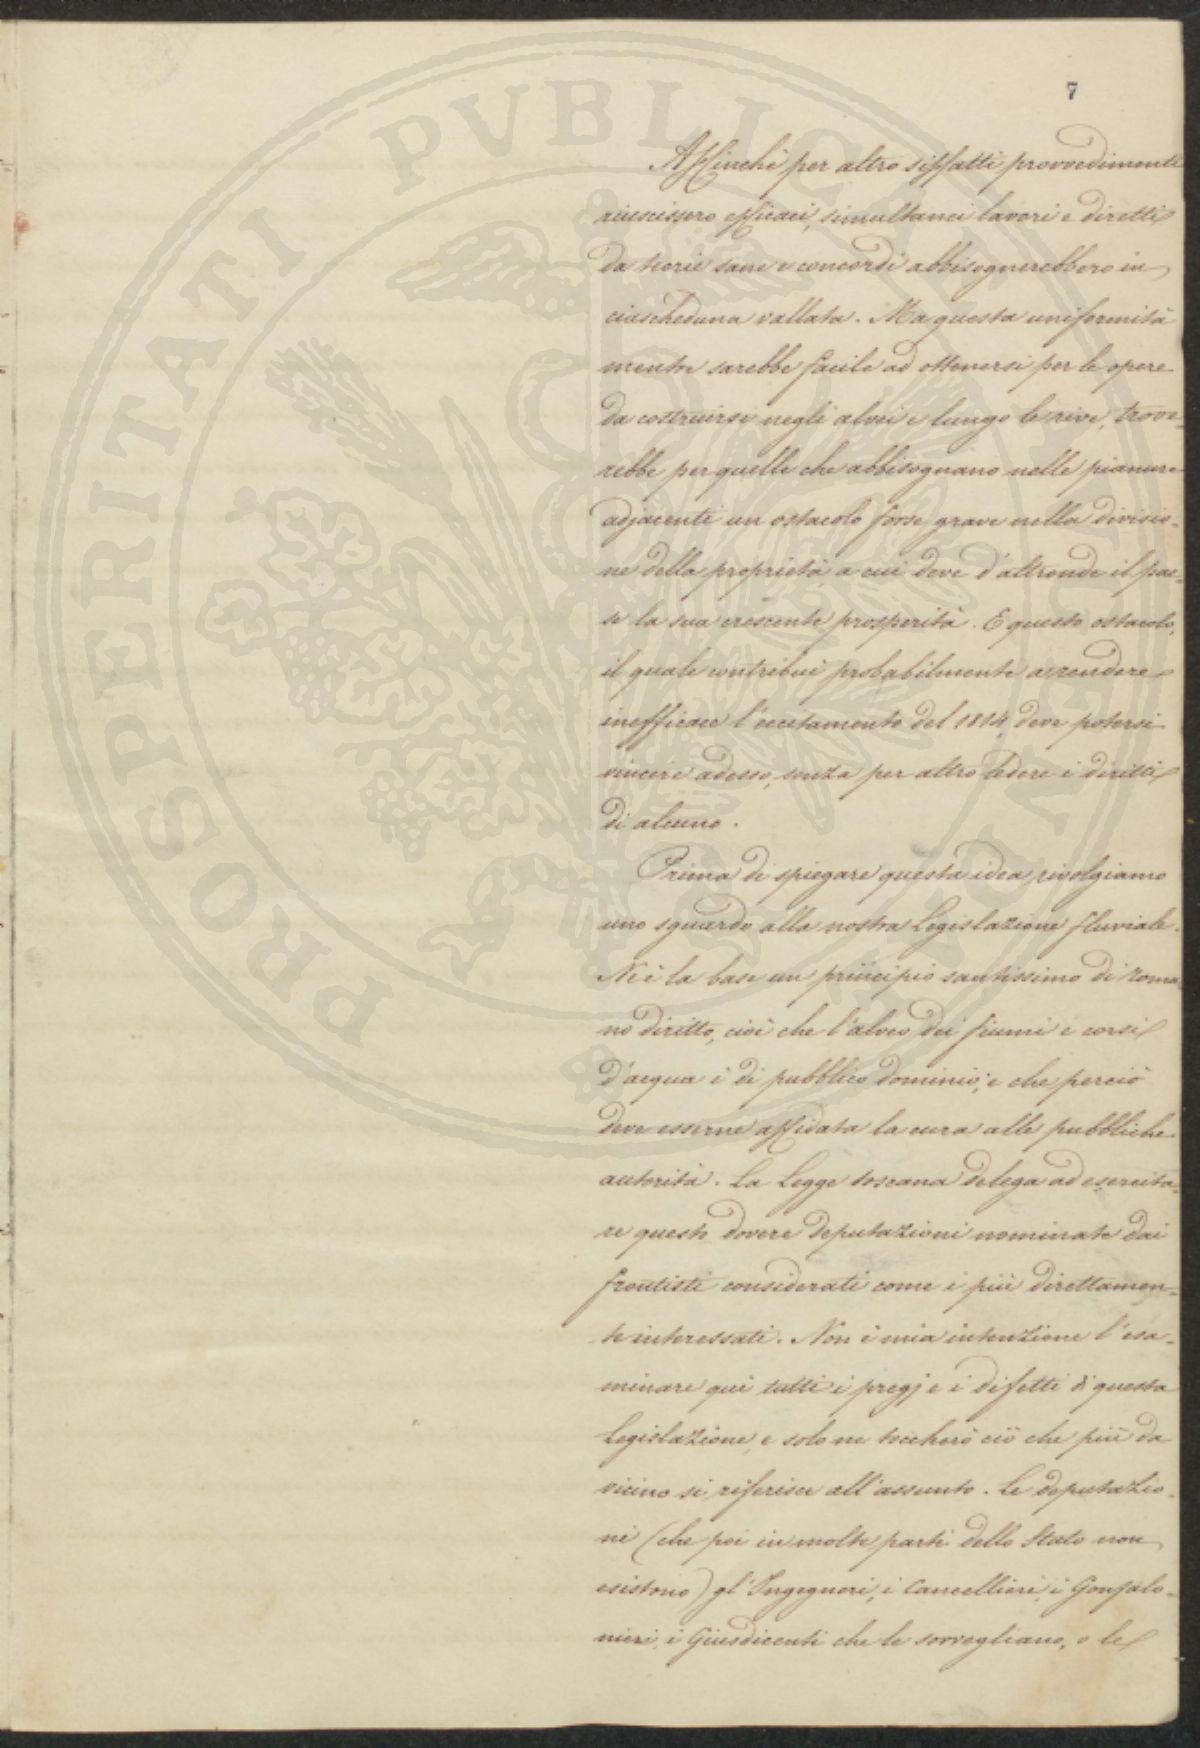 PROSPERITATI PVBLICAE
7
Affinchè per altro siffatti provvedimenti
riuscissero efficaci, simultanei lavori e diretti
da teorie sane e concordi abbisognerebbero in
ciascheduna vallata. Ma questa uniformità
mentre sarebbe facile ad ottenersi per le opere
da costruirsi negli alvei e lungo le rive, trove-
rebbe per quelle che abbisognano nelle pianure
adjacenti un ostacolo forse grave nella divisio-
ne della proprietà a cui deve d'altronde il pae-
se la sua crescente prosperità. E questo ostacolo,
il quale contribuì probabilmente a rendere
inefficace l'eccitamento del 1814, deve potersi
vincere adesso, senza per altro ledere i diritti
di alcuno.
Prima di spiegare questa idea rivolgiamo
uno sguardo alla nostra Legislazione fluviale.
N'è la base un principio santissimo di roma
no diritto, cioè che l'alveo dei fiumi e corsi
d'acqua è di pubblico dominio; e che perciò
deve esserne affidata la cura alle pubbliche
autorità. La Legge toscana delega ad esercita-
re questo dovere deputazioni nominate dai
frontisti considerati come i più direttamen-
te interessati. Non è mia intenzione l'esa-
minare qui tutti i pregj e i difetti di questa
Legislazione, e solo ne toccherò ciò che più da
vicino si riferisce all'assunto. Le deputazio-
ni (che poi in molte parti dello Stato non
esistono) gl'Ingegneri, i Cancellieri, i Gonfalo-
nieri, i Giusdicenti che le sorvegliano, o le